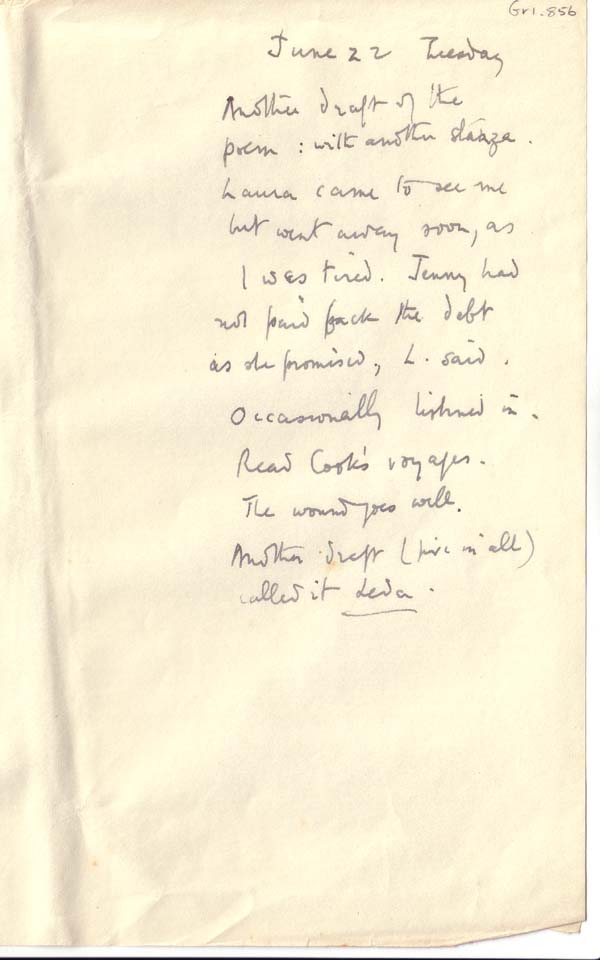 Gr1.856
June 22 Tuesday
Another draft of the
poem : with another stanza .
Laura came to see me
but went away soon, as
I was tired. Jenny had
not paid back the debt
as she promised, L. said .
Occasionally listened in .
Read Cook's voyages .
The wound goes well.
Another draft (five in all)
called it Leda .